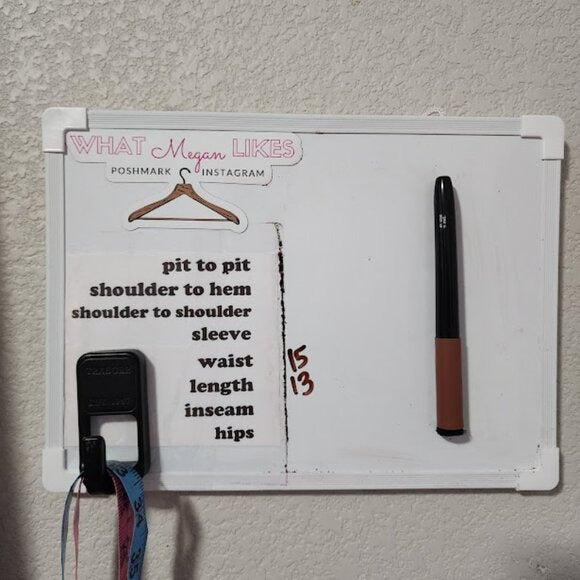 WHAT Megan LIKES
POSHMARK INSTAGRAM
pit to pit
shoulder to hem
shoulder to shoulder
sleeve
waist 15
length 13
inseam
hips